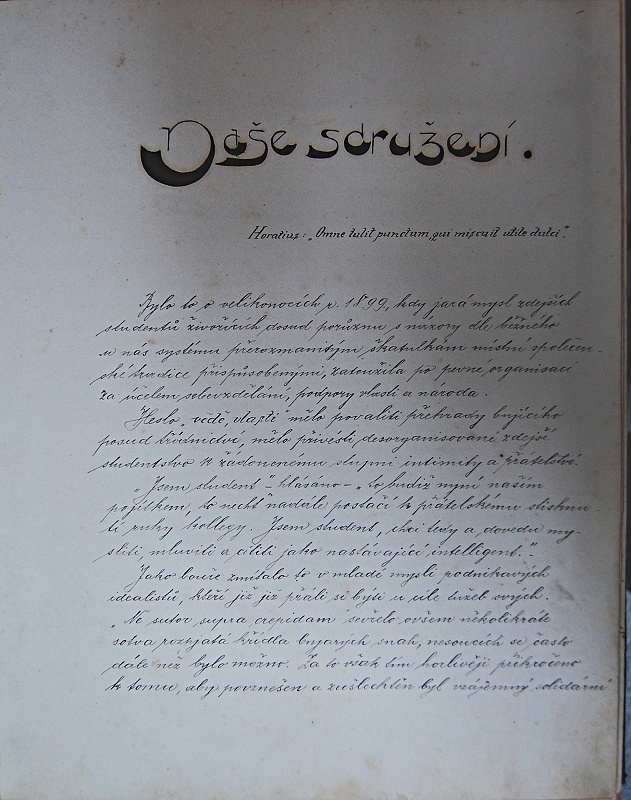 Naše sdružení.
Horatius: „Omne tulit punctum, qui miscuit utile dulci".
Bylo to o velikonocích r. 1899, kdy jará mysl zdejších
studentů živořících dosud porůznu s názory dle běžného
u nás systému přerozmanitým škatulkám místní společen-
ské tradice přispůsobenými, zatoužila po pevné organisaci
za účelem sebevzdělání, podpory vlasti a národa.
Heslo „vědě, vlasti" mělo povaliti přehrady bujícího
posud třídnictví, mělo přivésti desorganisované zdejší
studentstvo k žádoucnému stupni intimity a přátelství.
„Jsem student" – hlásáno – „to budiž nyní naším
pojítkem, to nechť nadále postačí k přátelskému stisknu-
tí ruky kollegy. Jsem student, chci tedy a dovedu my-
sliti, mluviti a cítiti jako nastávající intelligent." –
Jako bouře zmítalo to v mladé mysli podnikavých
idealistů, kteří již již přáli si býsi u cíle tužeb svých.
„Ne sutor supra crepidam" sevřelo ovšem několikráte
sotva rozpjatá křídla bujarých snah, nesoucích se často
dále než bylo možno. Za to však tím horlivěji přikročeno
k tomu, aby povznešen a zušlechtěn byl vzájemný solidární